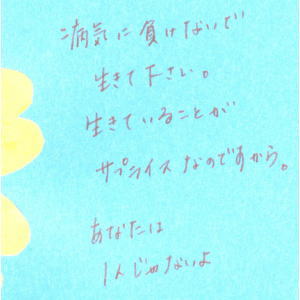 病気に負けないで
生きて下さい。
生きていることが
サプライズなのですから。
あなたは
1人じゃないよ